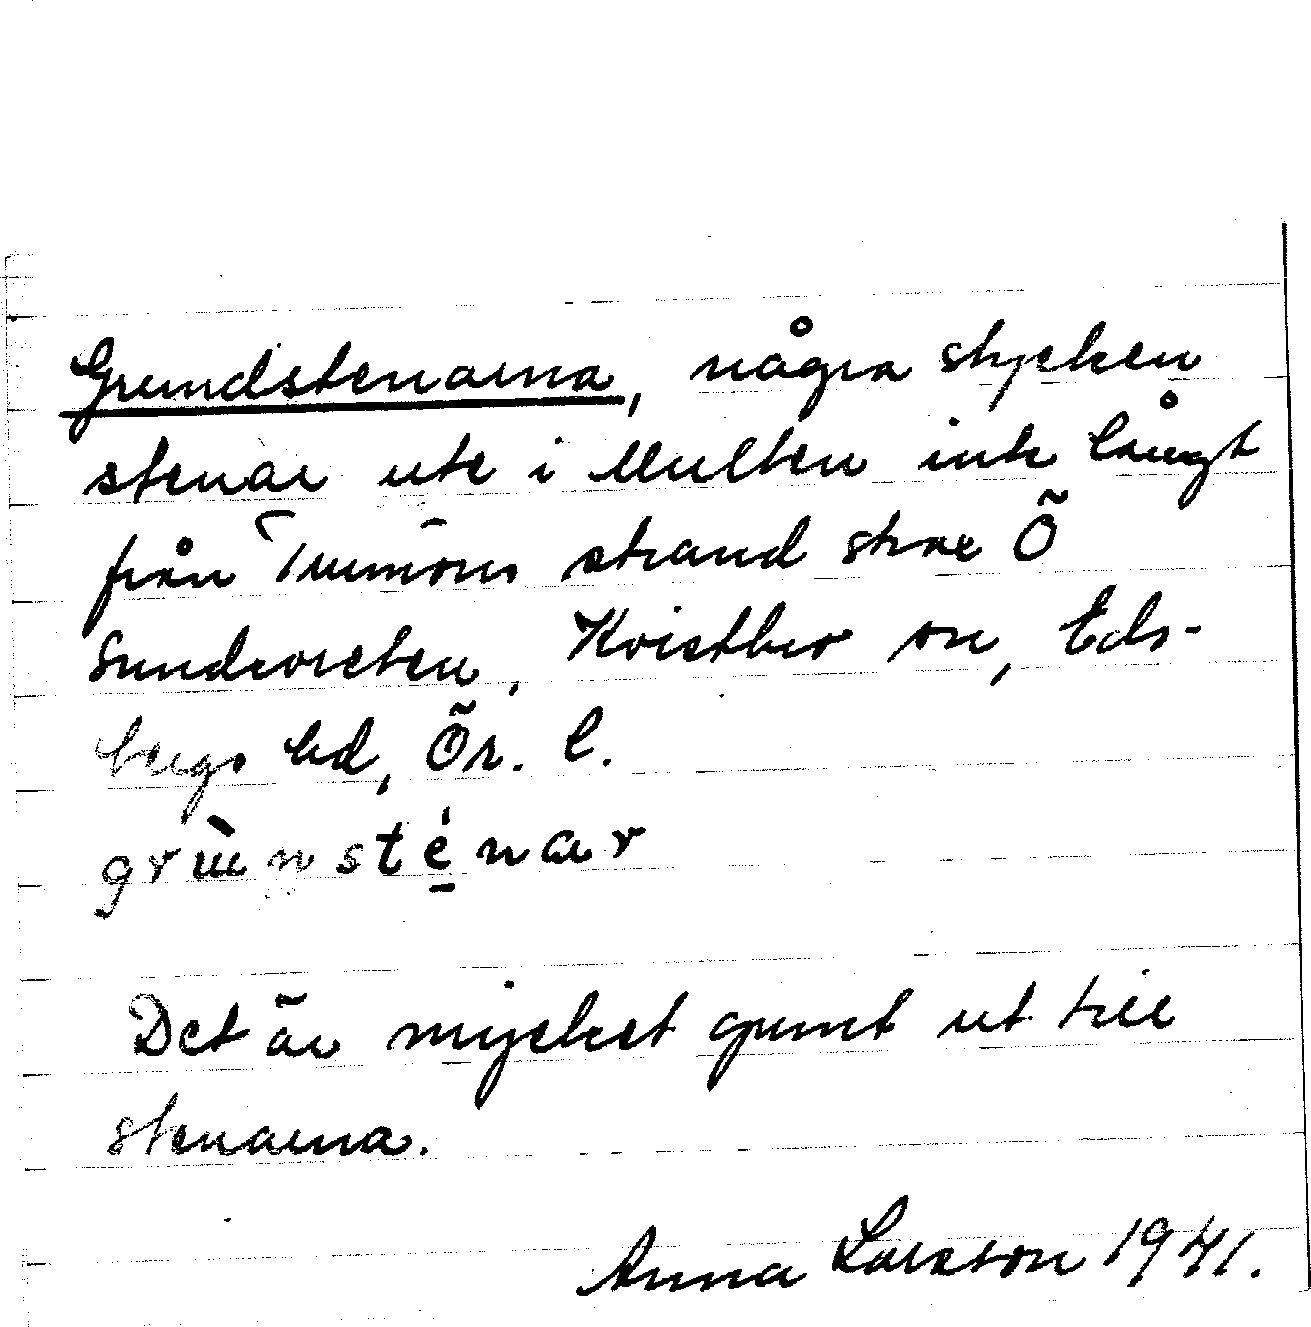 Grundstenarna, några stycken
stenar ute i Multen inte långt
från Trumöns strand strax Ö
Sundsviken, Kvistbro sn, Eds-
bergs hd, Ör. l.
grùnsténar
Det är mycket grunt ut till
stenarna.
Anna Larsson 1941.